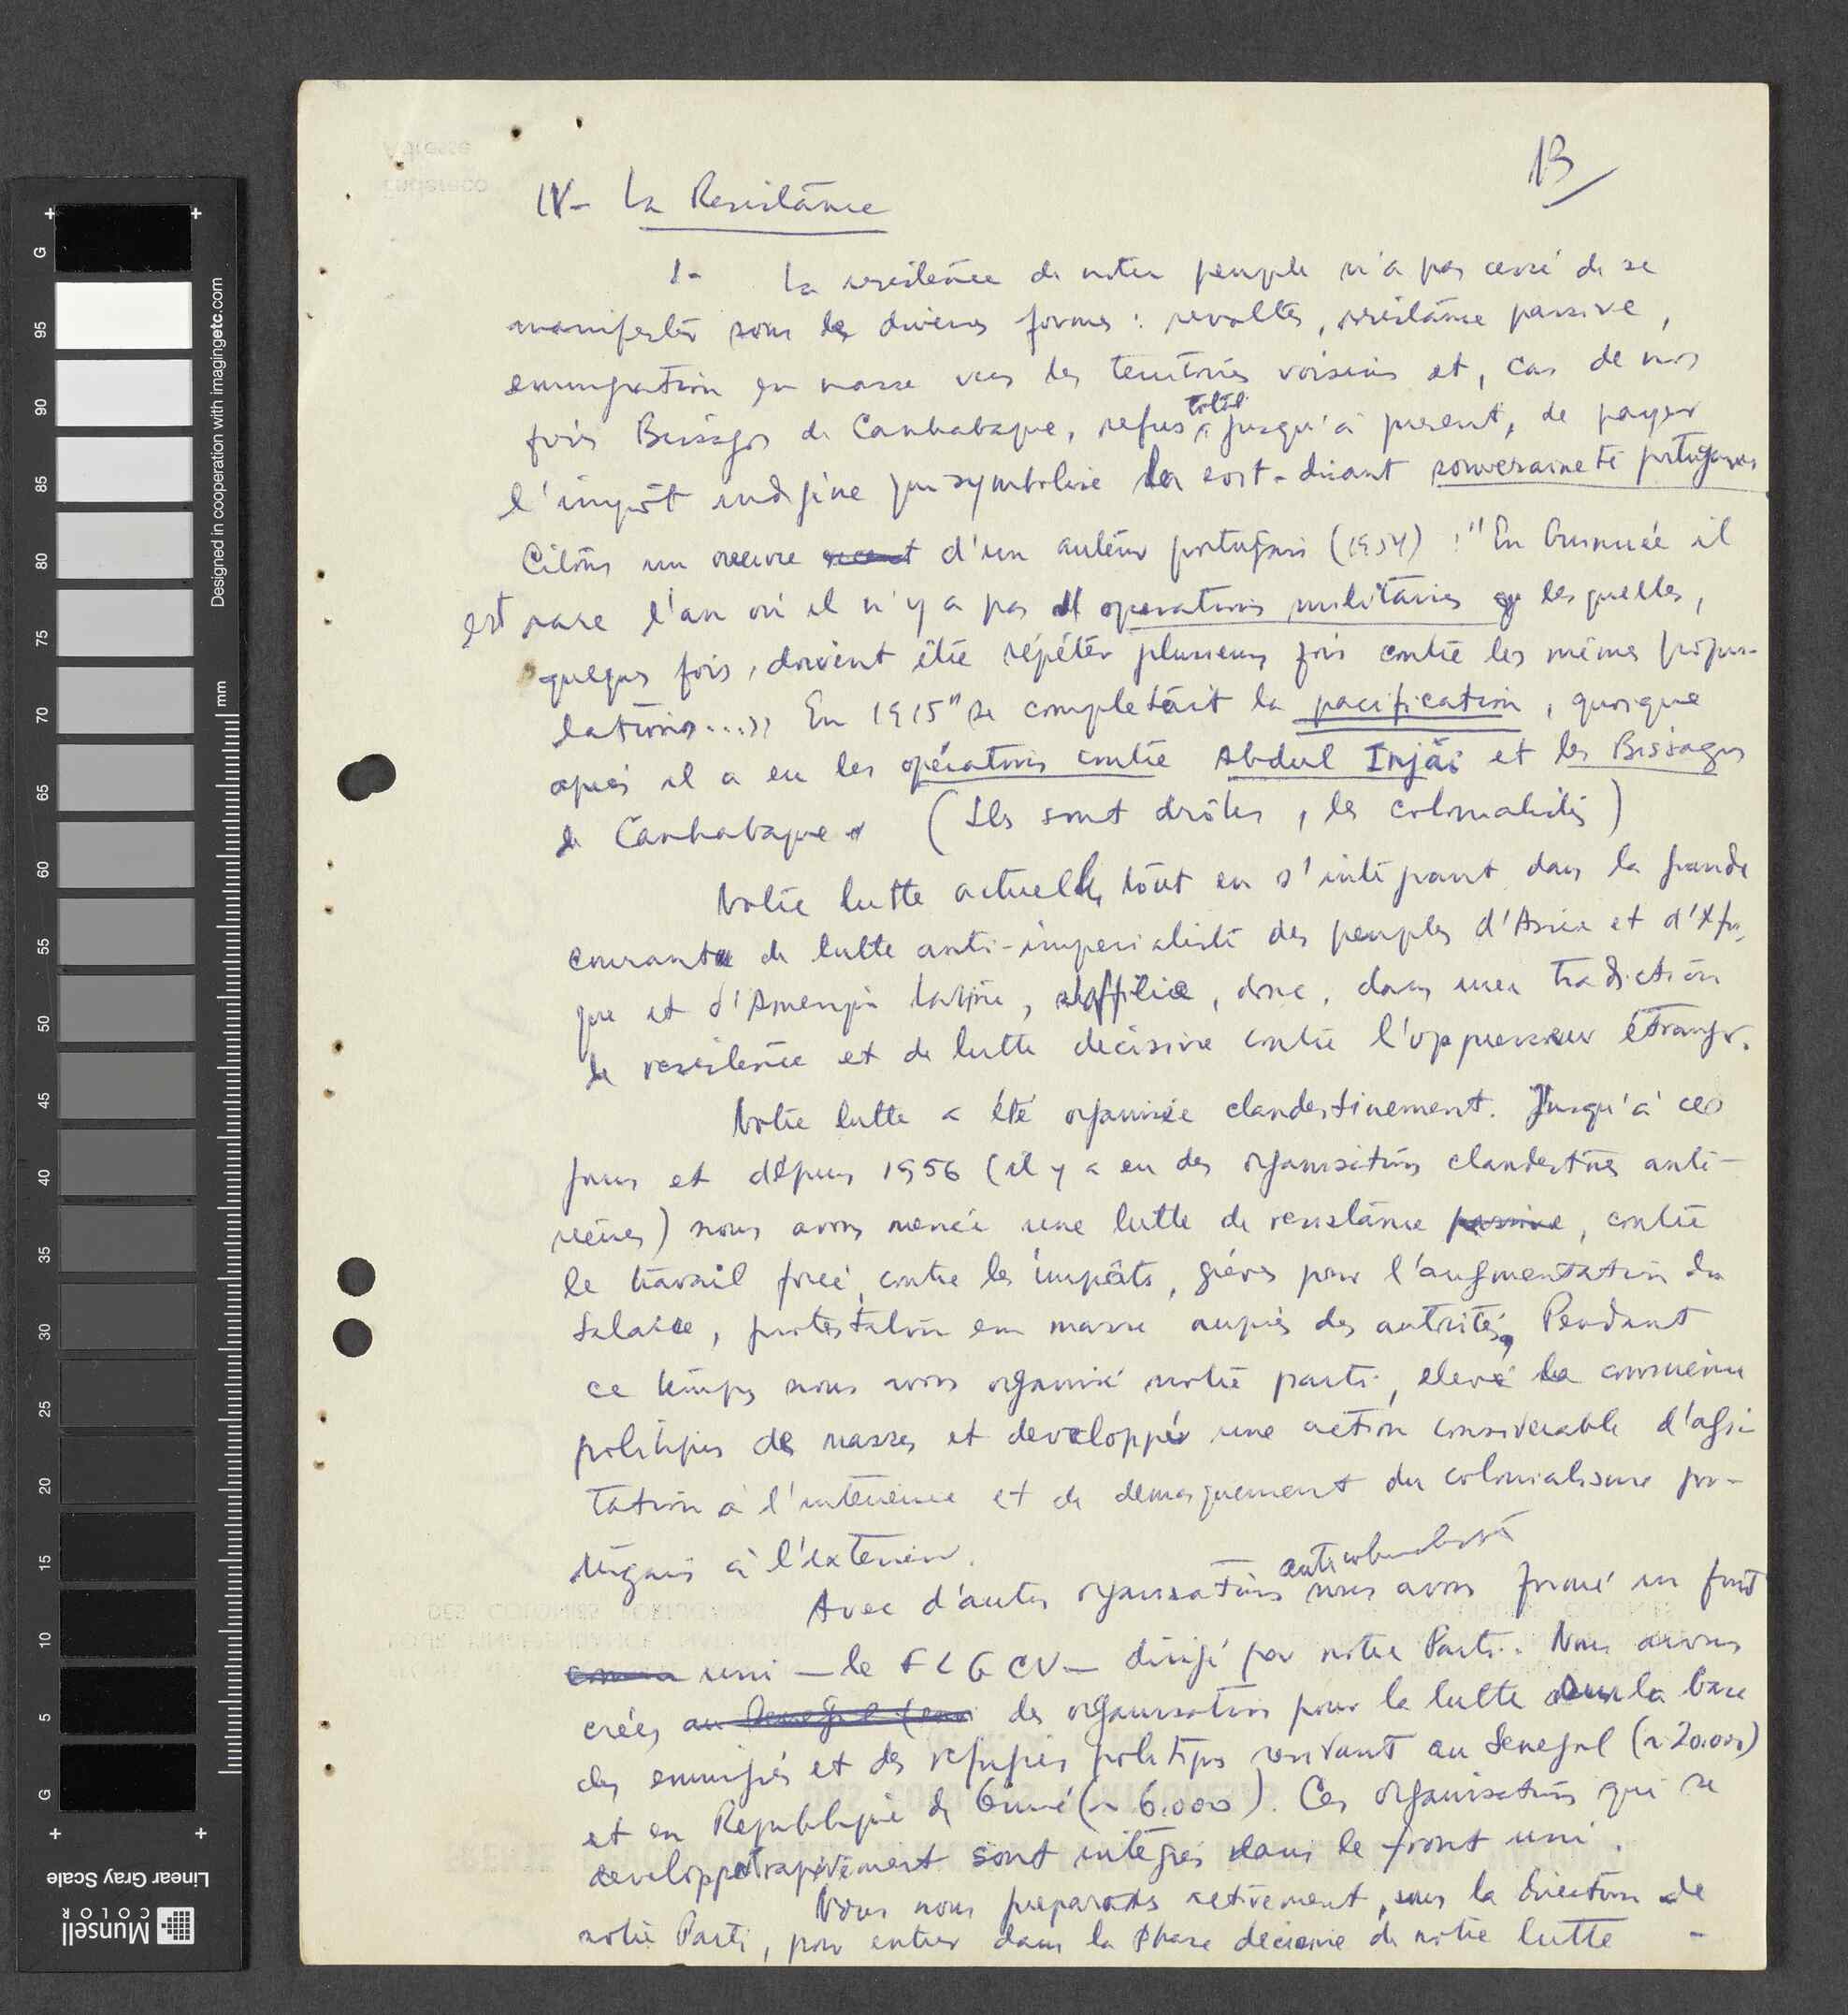 13
IV- La Resistance
1- La resistence de notre peuple n'a pas cessé de se
manifester sous les diverses formes : revoltes, resistance passive,
emmigration en masse vers les territoires voisins et, cas de nos
Bissagos de Canhabaque, refus total jusqu'à present, de payer
l'impôt indigène qui symbolise la soit-disant souveraineté portugaise
Citons un oeuvre recent d'un auteur portugais (1954) : "En Guinuée il
est rare l'an où il n'y a pas d'operations militaires lesquelles,
quelques fois, doivent être répéter plusieurs fois contre les mêmes popu-
lations...» En 1915 "se completait la pacification, quoique
après il a eu les opérations contre Abdul Injái et les Bissagos
de Canhabaque" (Ils sont drôles, les colonialistes)
Notre lutte actuelle, tout en s'intégrant dans la grande
courante de lutte anti-imperialiste des peuples d'Asie et d'Afri-
que et d'Amerique latine, s'affilie, donc, dans une tradiction
de resistence et de lutte decisive contre l'oppresseur étranger.
Notre lutte a été organisée clandestinement. Jusqu'à ces
jours et dépuis 1956 (il y a eu des organisations clandestines anté-
rieures) nous avons menée une lutte de resistance passive, contre
le travail forcé, contre les impôts, grèves pour l'augmentation du
salaire, protestation en masse auprès des autorités, Pendant
ce temps nous avons organisé notre parti, elevé la conscience
politique des masses et developpér une action considerable d'agi-
tation à l'interieure et de demasquement du colonialisme por-
tugais à l'exterieur.
anticolonialistes
Avec d'autres organisations nous avons formé un front
uni — le FLGCV — dirigé par notre Parti. Nous avons
créés au Senegal des organisations pour la lutte sur la base
des emmigrés et des refugiés politiques residant au Senegal (~ 20.000)
et en Republique de Guiné (~ 6.000). Ces organisations qui se
developpent rapidement sont intégrés dans le front uni.
Nous nous preparons activement, sous la direction de
notre Parti, pour entrer dans la phase decisive de notre lutte -
mm
Designed in cooperation with imagingetc.com
G
95
90
85
80
75
70
65
60
55
50
45
40
35
30
25
20
15
10
5
G
Linear Gray Scale
Munsell
COLOR